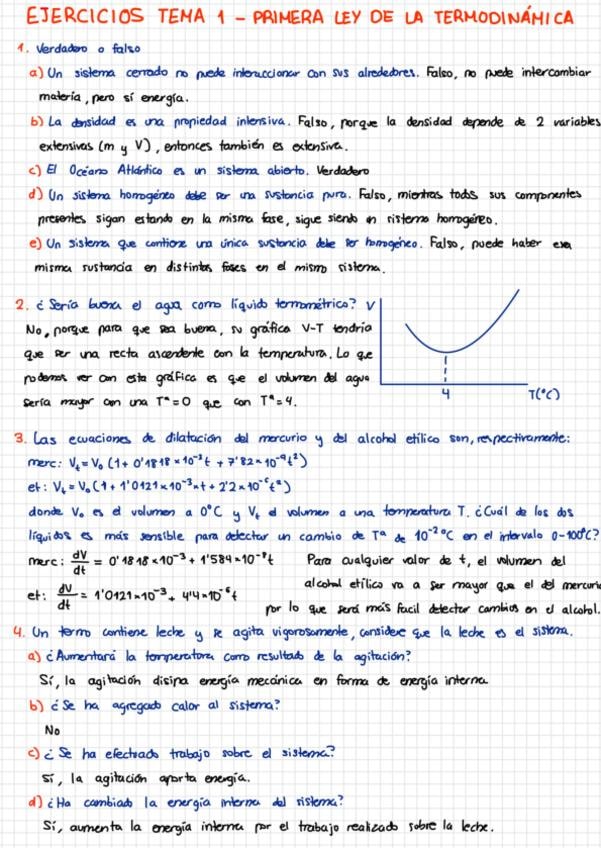 EJERCICIOS TEMA 1 - PRIMERA LEY DE LA TERMODINÁMICA
1. Verdadero o falso
a) Un sistema cerrado no puede interaccionar con sus alrededores. Falso, no puede intercambiar
materia, pero sí energía.
b) La densidad es una propiedad intensiva. Falso, porque la densidad depende de 2 variables
extensivas (m y V), entonces también es extensiva.
c) El Océano Atlántico es un sistema abierto. Verdadero
d) Un sistema homogéneo debe ser una sustancia pura. Falso, mientras todos sus componentes
presentes sigan estando en la misma fase, sigue siendo un sistema homogéreo.
e) Un sistema que contiene una única sustancia debe ser homogéneo. Falso, puede haber esa
misma sustancia en distintas fases en el mismo sistema.
2. ¿Sería buena el agua como líquido termométrico? V
No, porque para que sea buena, su gráfica V-T tendría
que ser una recta ascendente con la temperatura. Lo que
podemos ver con esta gráfica es que el volumen del agua
sería mayor con una Tª=0 que con Tª=4.
4 T(°C)
3. Las ecuaciones de dilatación del mercurio y del alcohol etílico son, respectivamente:
merc: Vt = V₀ (1 + 0'1818×10⁻³t + 7'82×10⁻⁹t²)
et: Vt = V₀ (1 + 1'0121×10⁻³×t + 2'2×10⁻⁶t²)
donde V₀ es el volumen a 0°C y Vt el volumen a una temperatura T. ¿Cuál de los dos
líquidos es más sensible para detectar un cambio de Tª de 10⁻²°C en el intervalo 0-100°C?
merc: dV/dt = 0'1818×10⁻³ + 1'584×10⁻⁸t Para cualquier valor de t, el volumen del
alcohol etílico va a ser mayor que el del mercurio
et: dV/dt = 1'0121×10⁻³ + 4'4×10⁻⁶t
por lo que será más facil detector cambios en el alcohol.
4. Un termo contiene leche y se agita vigorosamente, considere que la leche es el sistema.
a) ¿Aumentará la temperatura como resultado de la agitación?
Sí, la agitación disipa energía mecánica en forma de energía interna
b) ¿Se ha agregado calor al sistema?
No
c) ¿Se ha efectuado trabajo sobre el sistema?
Sí, la agitación aporta energía.
d) ¿Ha cambiado la energía interna del sistema?
Sí, aumenta la energía interna por el trabajo realizado sobre la leche.